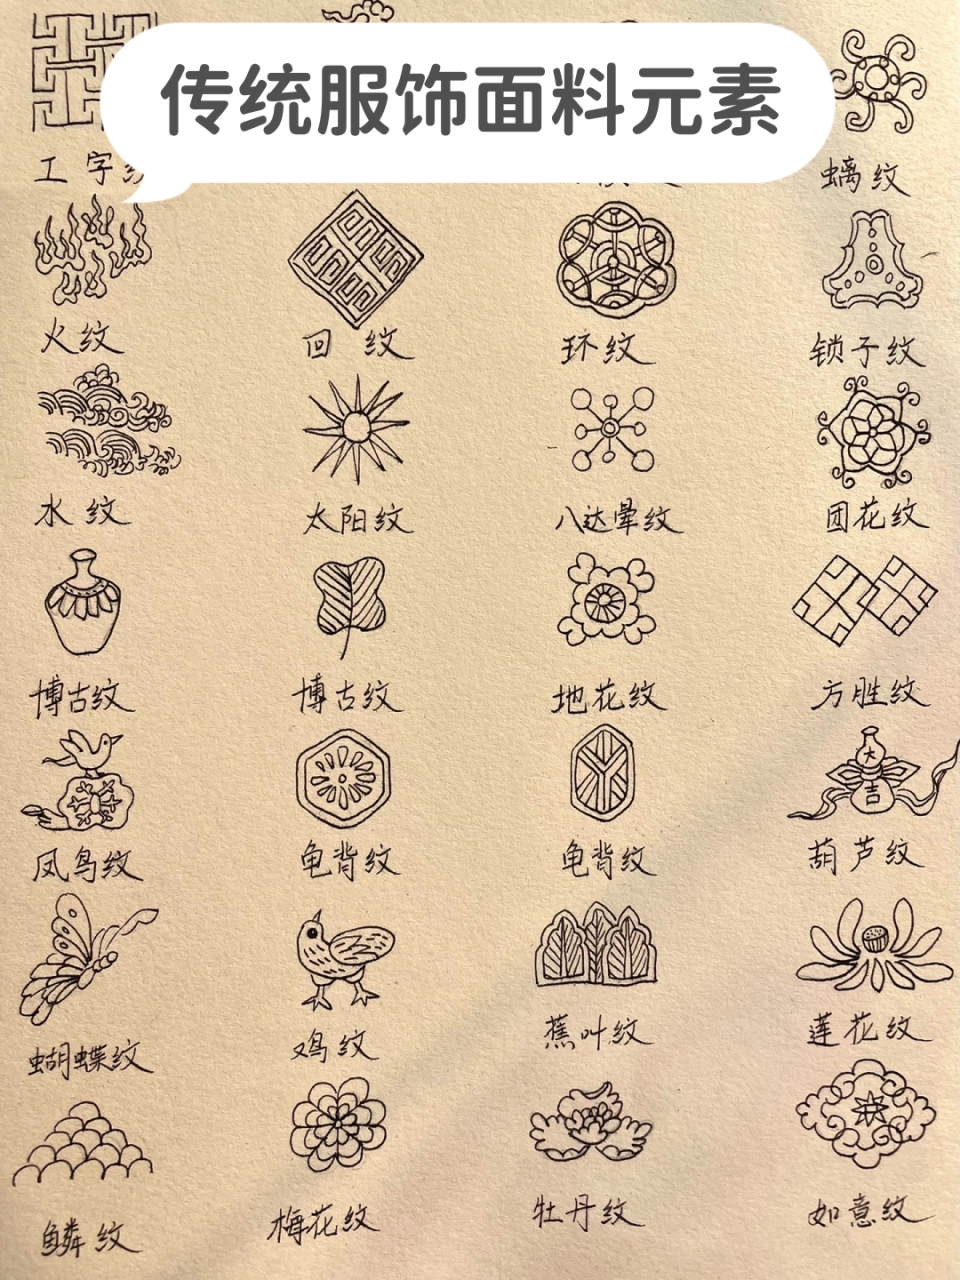 传统服饰面料元素
工字纹
螭纹
火纹
回纹
环纹
锁子纹
水纹
太阳纹
八达晕纹
团花纹
博古纹
博古纹
地花纹
方胜纹
大
吉
凤鸟纹
龟背纹
龟背纹
葫芦纹
蝴蝶纹
鸡纹
蕉叶纹
莲花纹
鳞纹
梅花纹
牡丹纹
如意纹